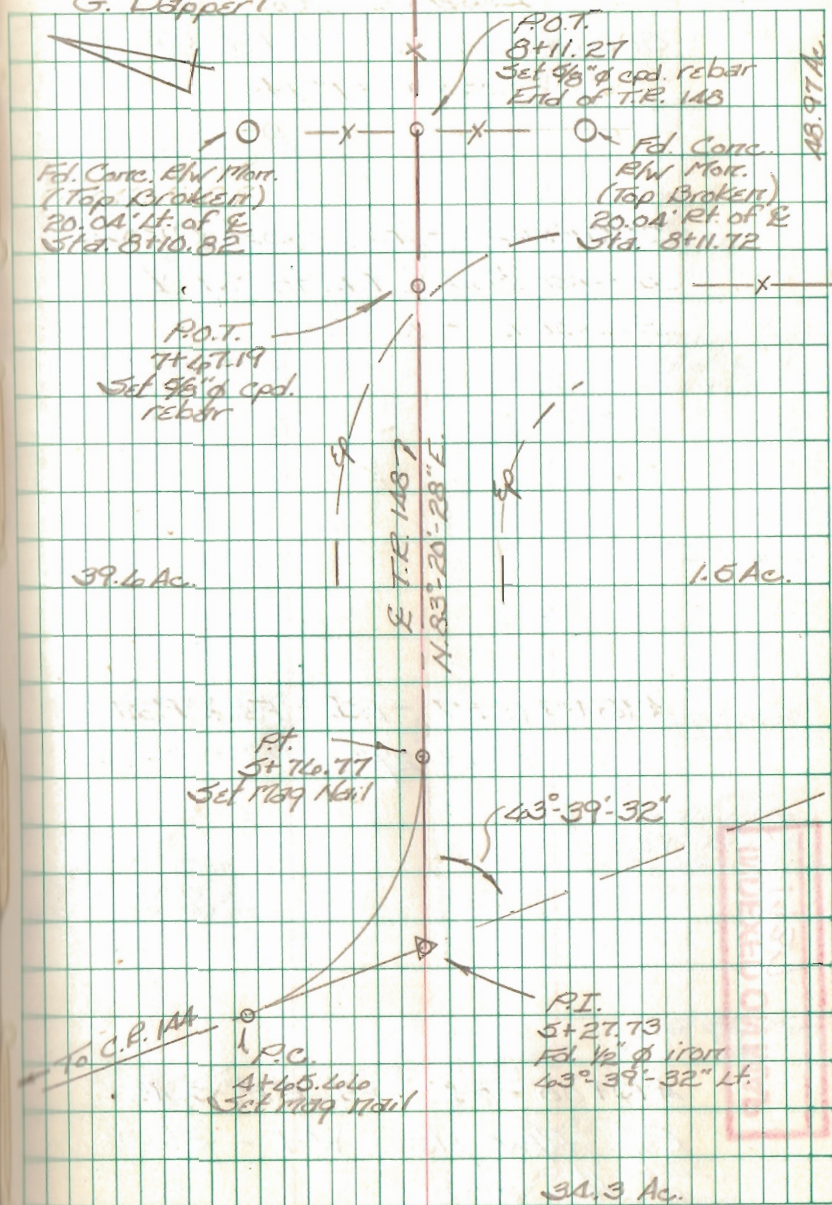 G. Dapper!
P.O.T.
8+11.27
Set 5/8"φ cpd. rebar
End of T.R. 148
48.97 Ac.
Fd. Conc. R/W Mon.
(Top Broken)
20.04' Lt. of ℄
Sta. 8+10.82
Fd. Conc.
R/W Mon.
(Top Broken)
20.04' Rt. of ℄
Sta. 8+11.72
x
x
x
x
P.O.T.
7+67.19
Set 5/8"φ cpd.
rebar
EP
EP
℄ T.R. 148
N.83°-20'-28"E.
39.6 Ac.
1.5 Ac.
P.t.
5+76.77
Set Mag Nail
63°-39'-32"
To C.R. 144
P.C.
4+65.66
Set Mag Nail
P.I.
5+27.73
Fd. 1/2" φ iron
63°-39'-32" Lt.
34.3 Ac.